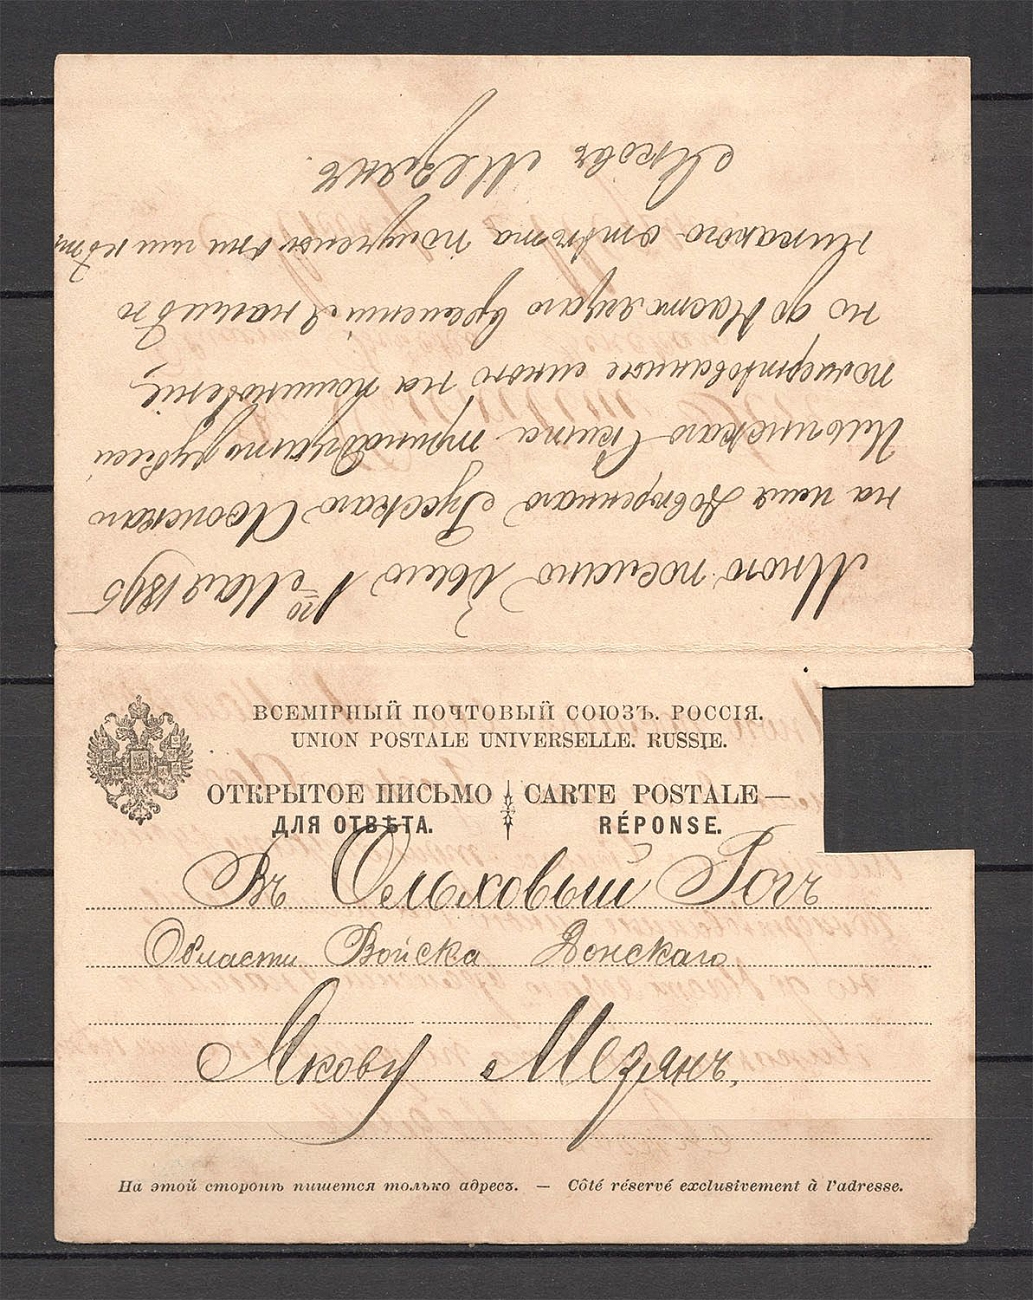 Мною послано было 1го Мая 1895
на имя довѣреннаго Русскаго Аѳонскаго
Ильинскаго Скита тринадцать рублей
пожертвованные мною на поминовение,
но до настоящаго времени я
никакого отвѣта получены эти или нѣтъ
Яковъ Медянъ.
ВСЕМІРНЫЙ ПОЧТОВЫЙ СОЮЗЪ. РОССІЯ.
UNION POSTALE UNIVERSELLE. RUSSIE.
ОТКРЫТОЕ ПИСЬМО CARTE POSTALE—
ДЛЯ ОТВѢТА. RÉPONSE.
Въ Ольховый Рогъ
Области Войска Донскаго
Якову Медянъ.
На этой сторонѣ пишется только адресъ. — Côté réservé exclusivement à l'adresse.